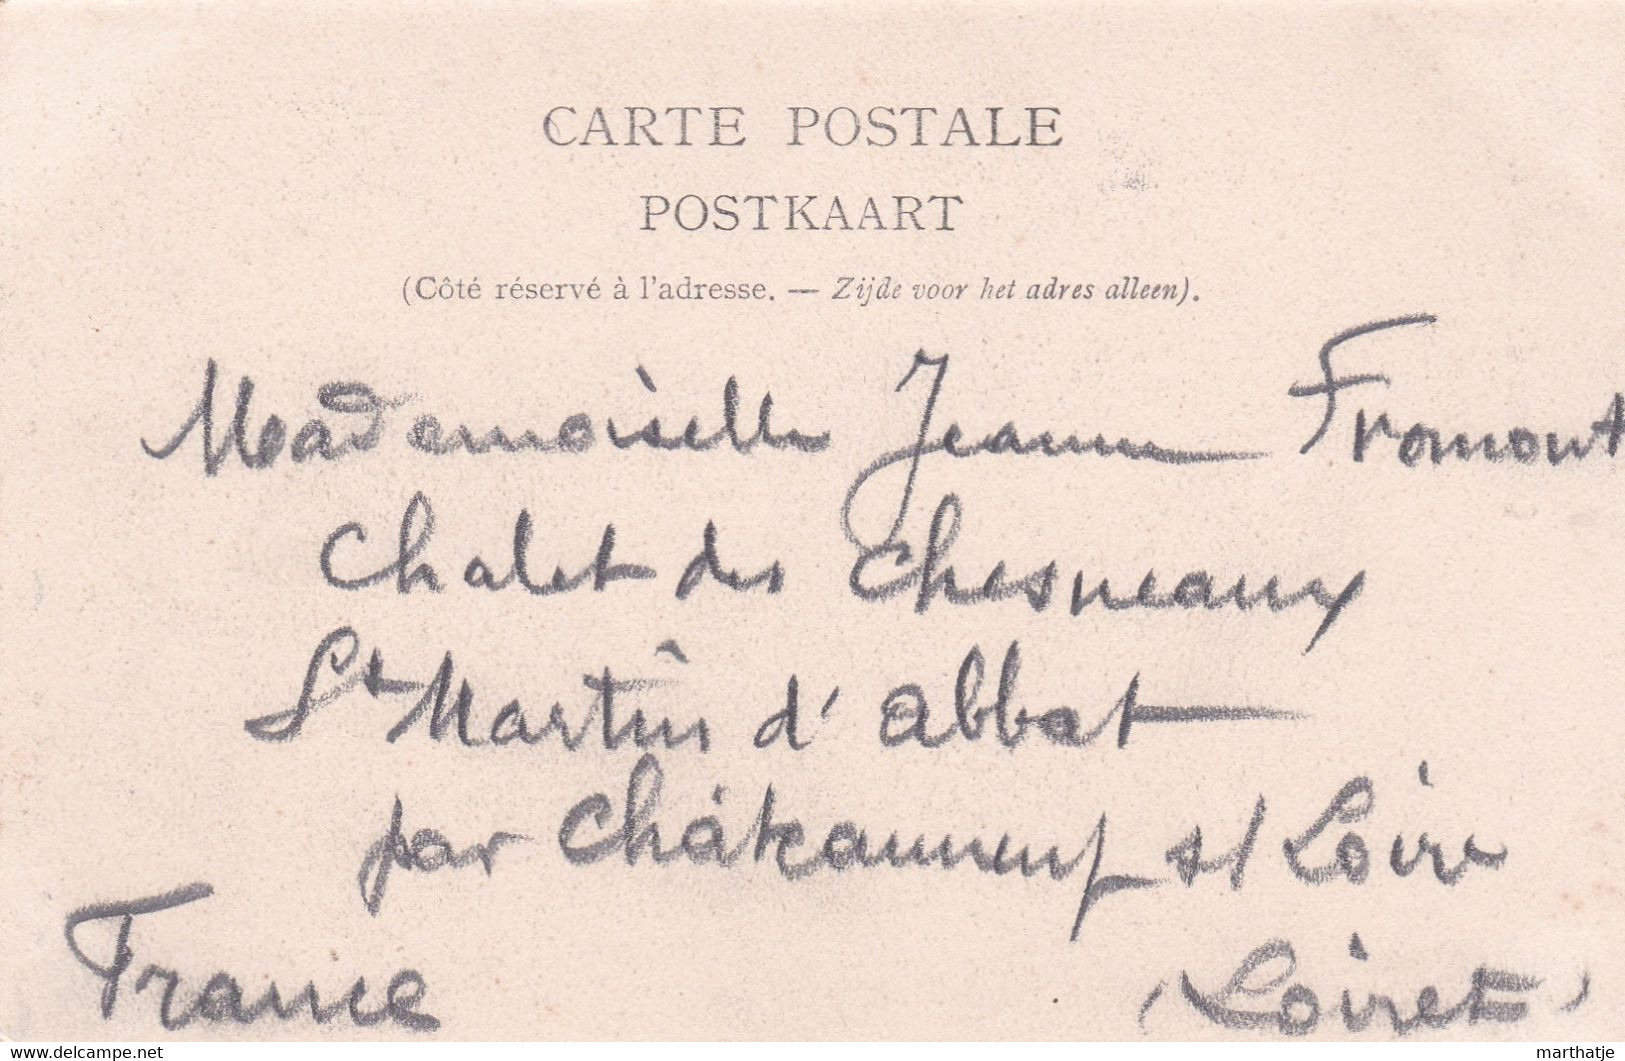 CARTE POSTALE
POSTKAART
(Côté réservé à l'adresse. — Zijde voor het adres alleen).
Mademoiselle Jeanne Fromont
Chalet des Chesneaux
St Martin d'abbat
par Châteauneuf s/ Loire
France (Loiret)
www.delcampe.net
marthatje